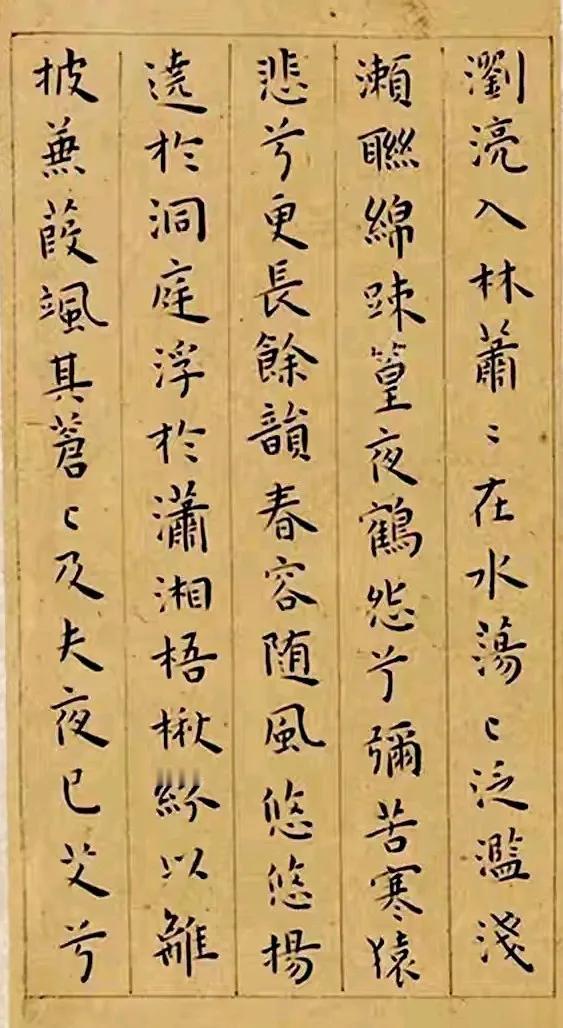 瀏湸入林蕭〻在水蕩〻泛濫淺
瀨聮綿踈篁夜鶴怨兮彌苦寒猿
悲兮更長餘韻春容随風悠悠揚
遶於洞庭浮於瀟湘梧楸紛以離
披蒹葭颯其蒼〻及夫夜已艾兮